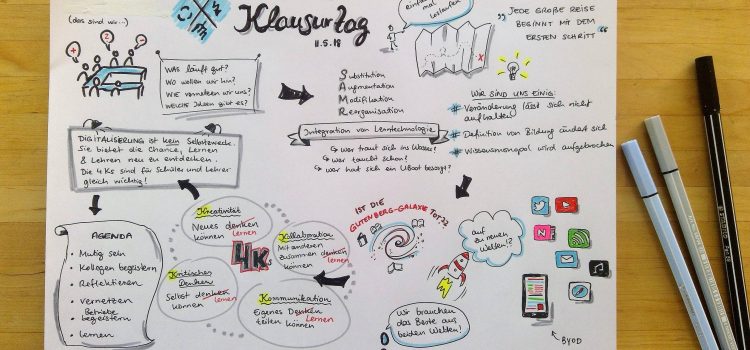 (das sind wir...)
+
2
-
Klausurtag
11.5.18
einfach
mal
loslaufen
x
„JEDE GROßE REISE
BEGINNT MIT DEM
ERSTEN SCHRITT“
WAS läuft gut?
WO wollen wir hin?
WIE vernetzen wir uns?
WELCHE Ideen gibt es?
Substitution
Augmentation
Modifikation
Reorganisation
Integration von Lerntechnologie
↳ wer traut sich ins Wasser?
↳ wer taucht schon?
↳ wer hat sich ein UBoot besorgt?
WIR SIND UNS EINIG:
# Veränderung lässt sich nicht
aufhalten
# Definition von Bildung ändert sich
# Wissensmonopol wird aufgebrochen
DIGITALISIERUNG ist kein Selbstzweck.
Sie bietet die Chance, Lernen
& Lehren neu zu entdecken.
Die 4Ks sind für Schüler und Lehrer
gleich wichtig!
AGENDA
• Mutig sein
• Kollegen begeistern
• Reflektieren
• Vernetzen
• Betriebe
begeistern
• Lernen
Kreativität
Neues denken
können lernen
4Ks
Kollaboration
Mit anderen
zusammen denken
können lernen
Kritisches
Denken
Selbst denken
können lernen
Kommunikation
Eigenes Denken
teilen können
Lernen
IST DIE
GUTENBERG-GALAXIE TOT??
auf
zu neuen
Welten!?
Wir brauchen
das Beste aus
beiden Welten!
BYOD